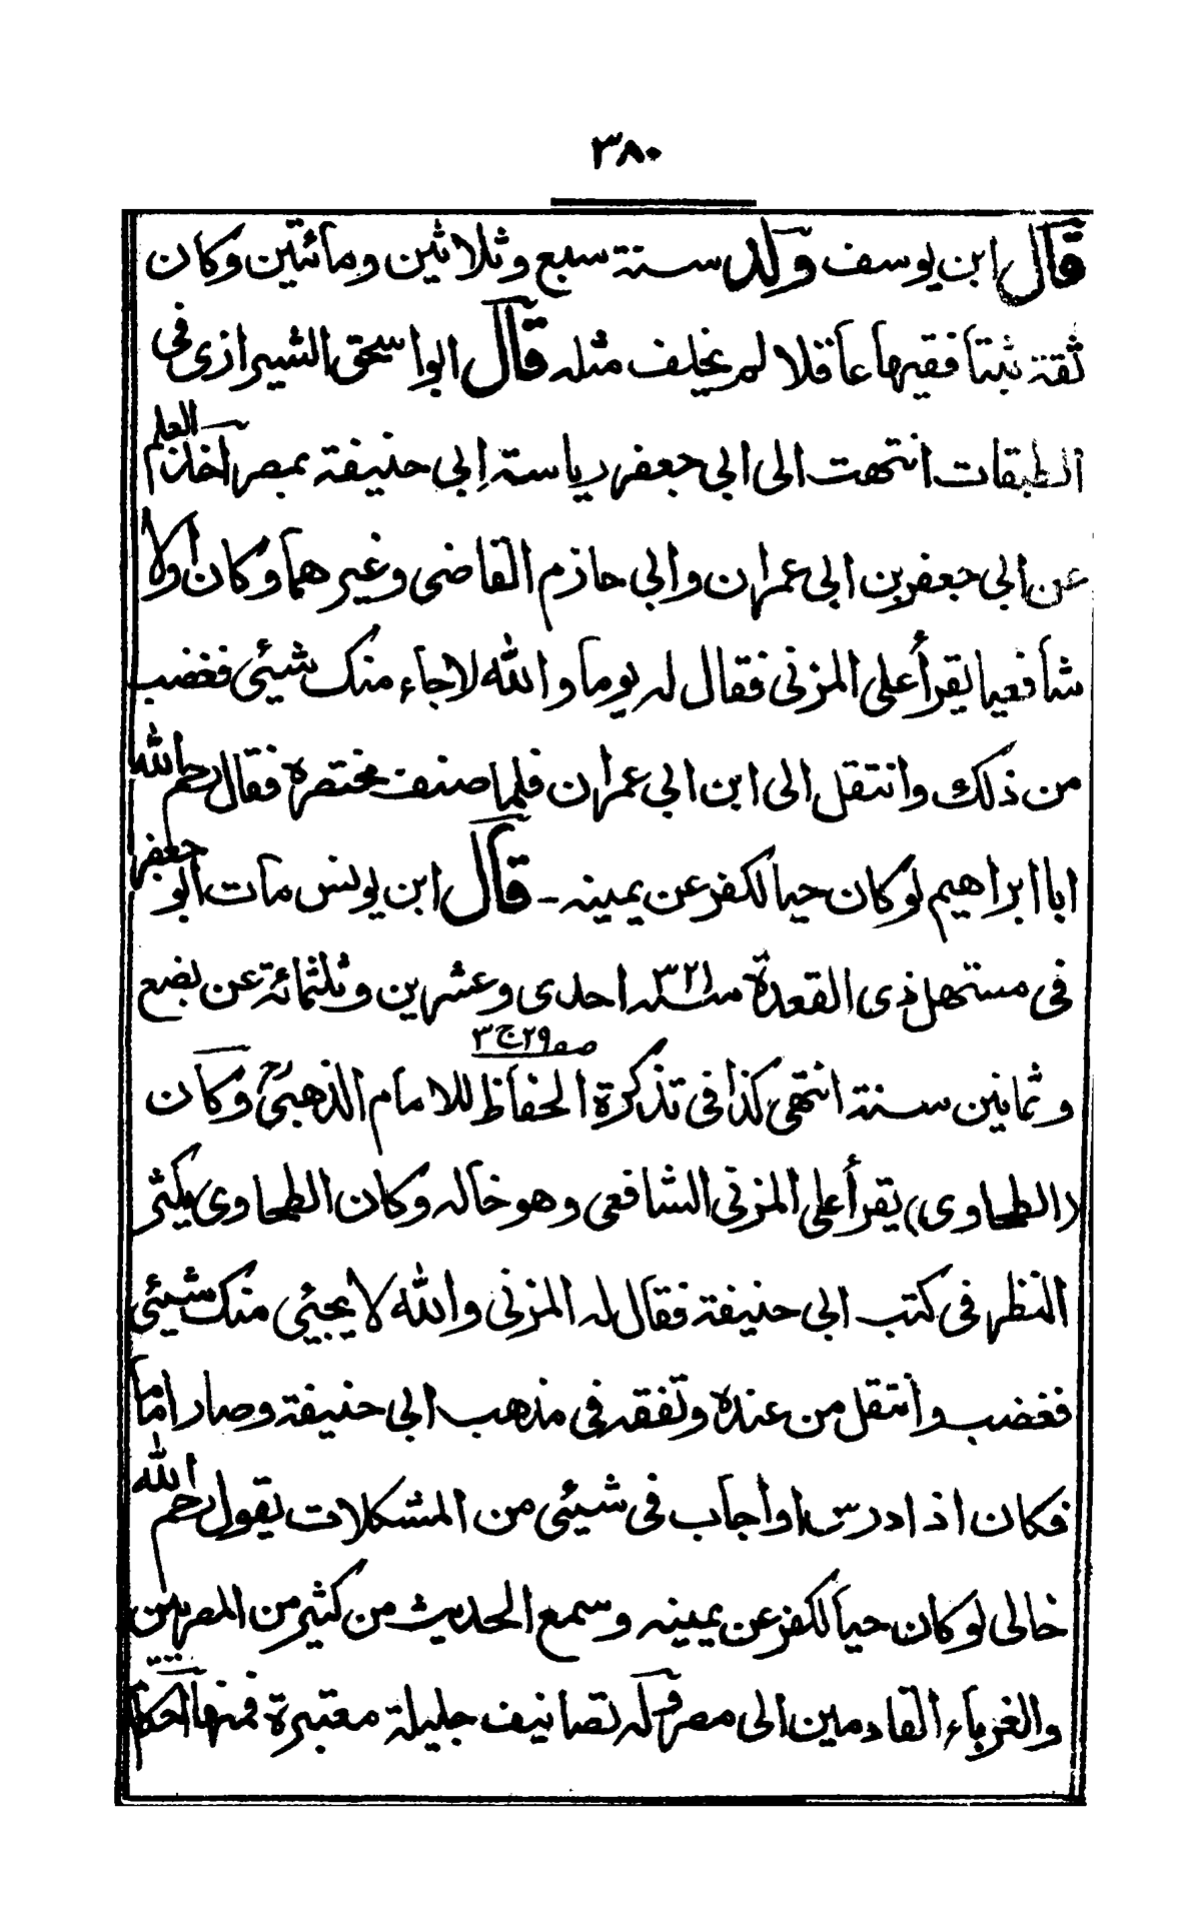 ٣٨٠
قال ابن يوسف ولد سنة سبع وثلاثين ومائتين وكان
ثقة ثبتا فقيها عاقلا لم يخلف مثله قال ابو اسحق الشيرازى فى
الطبقات انتهت الى ابى جعفر رياسة ابى حنيفة بمصر اخذ العلم
عن ابى جعفر بن ابى عمران وابى حازم القاضى وغيرهما وكان اولا
شافعيا يقرأ على المزنى فقال له يوما والله لا جاء منك شيئى فغضب
من ذلك وانتقل الى ابن ابى عمران فلما صنف مختصره فقال رحم الله
ابا ابراهيم لو كان حيا لكفر عن يمينه - قال ابن يونس مات ابو جعفر
فى مستهل ذى القعدة سنة ٣٢١ احدى وعشرين وثلثمائة عن بضع
وثمانين سنة انتهى كذا فى تذكرة الحفاظ للامام الذهبى رح وكان
صـ ٢٩ ج ٣
(الطحاوى) يقرأ على المزنى الشافعى وهو خاله وكان الطحاوى يكثر
النظر فى كتب ابى حنيفة فقال له المزنى والله لا يجيئى منك شيئى
فغضب وانتقل من عنده وتفقه فى مذهب ابى حنيفة وصار اماما
فكان اذا درس او اجاب فى شيئى من المشكلات يقول رحم الله
خالى لو كان حيا لكفر عن يمينه وسمع الحديث من كثير من المصريين
والغرباء القادمين الى مصر وله تصانيف جليلة معتبرة فمنها احكام